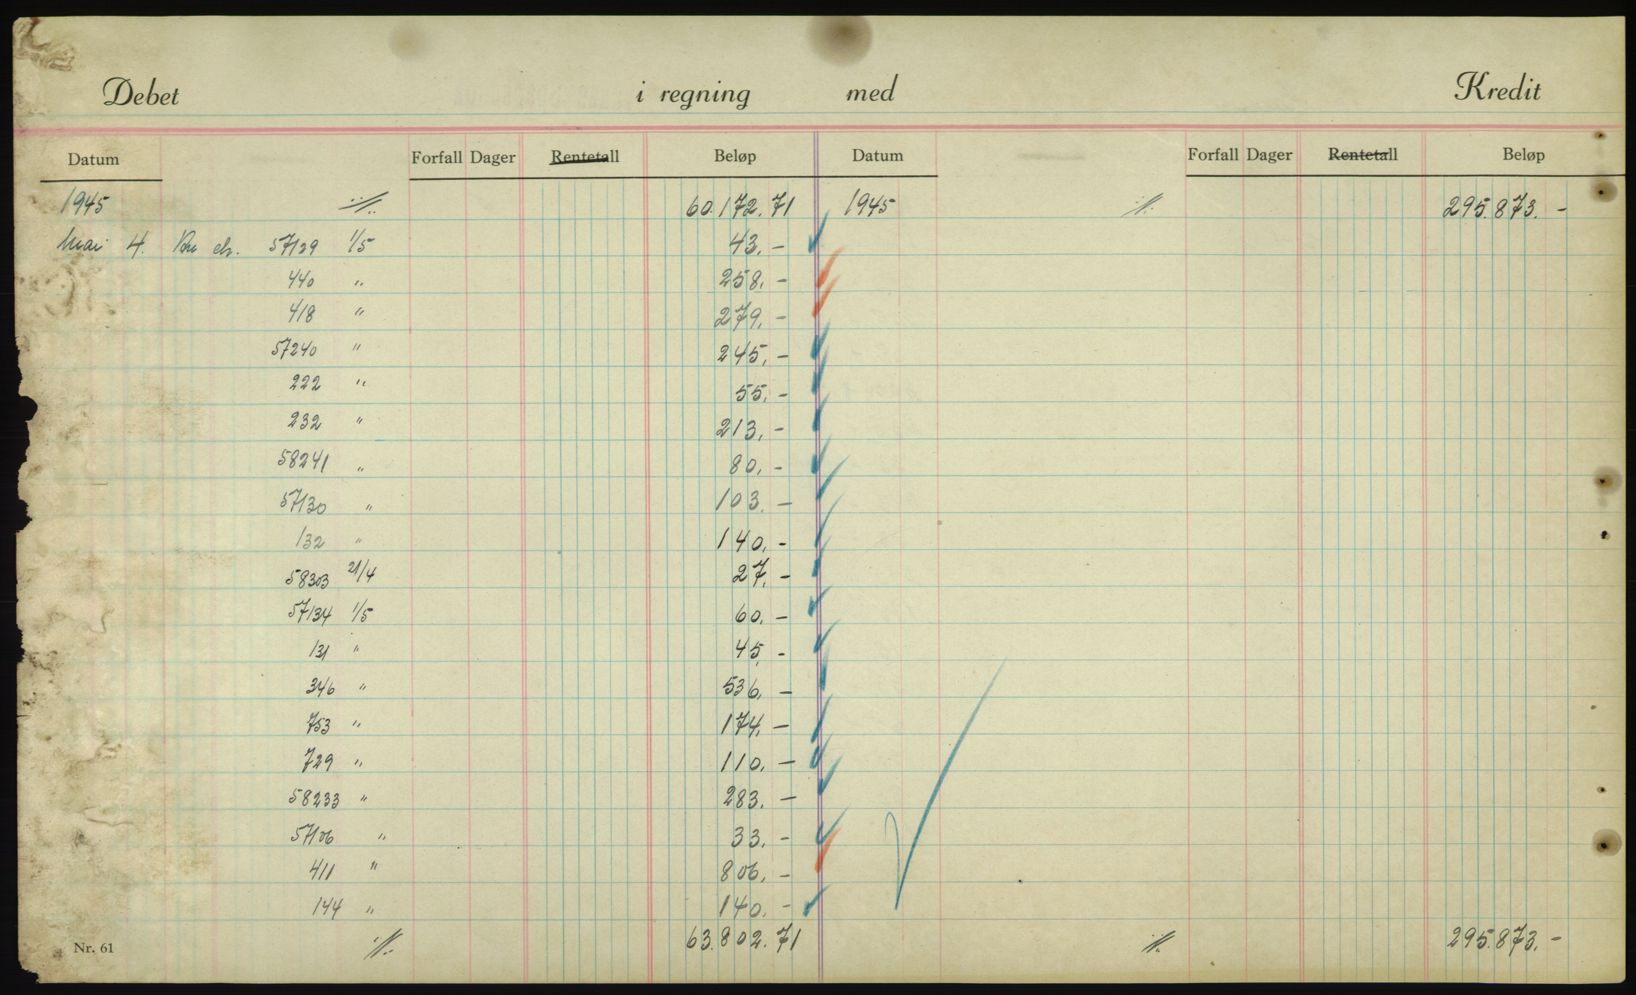 Debet i regning med Kredit
Datum Forfall Dager Rentetall Beløp Datum Forfall Dager Rentetall Beløp
1945 60.172.71 1945 295.873.-
Mai 4. 57129 1/5 43.-
440 " 258.-
418 " 279.-
57240 " 245.-
222 " 55.-
232 " 213.-
58241 " 80.-
57130 " 103.-
132 " 140.-
58303 21/4 27.-
57134 1/5 60.-
131 " 45.-
346 " 536.-
753 " 174.-
729 " 110.-
58233 " 283.-
57106 " 33.-
411 " 806.-
144 " 140.-
Nr. 61 63.802.71 295.873.-